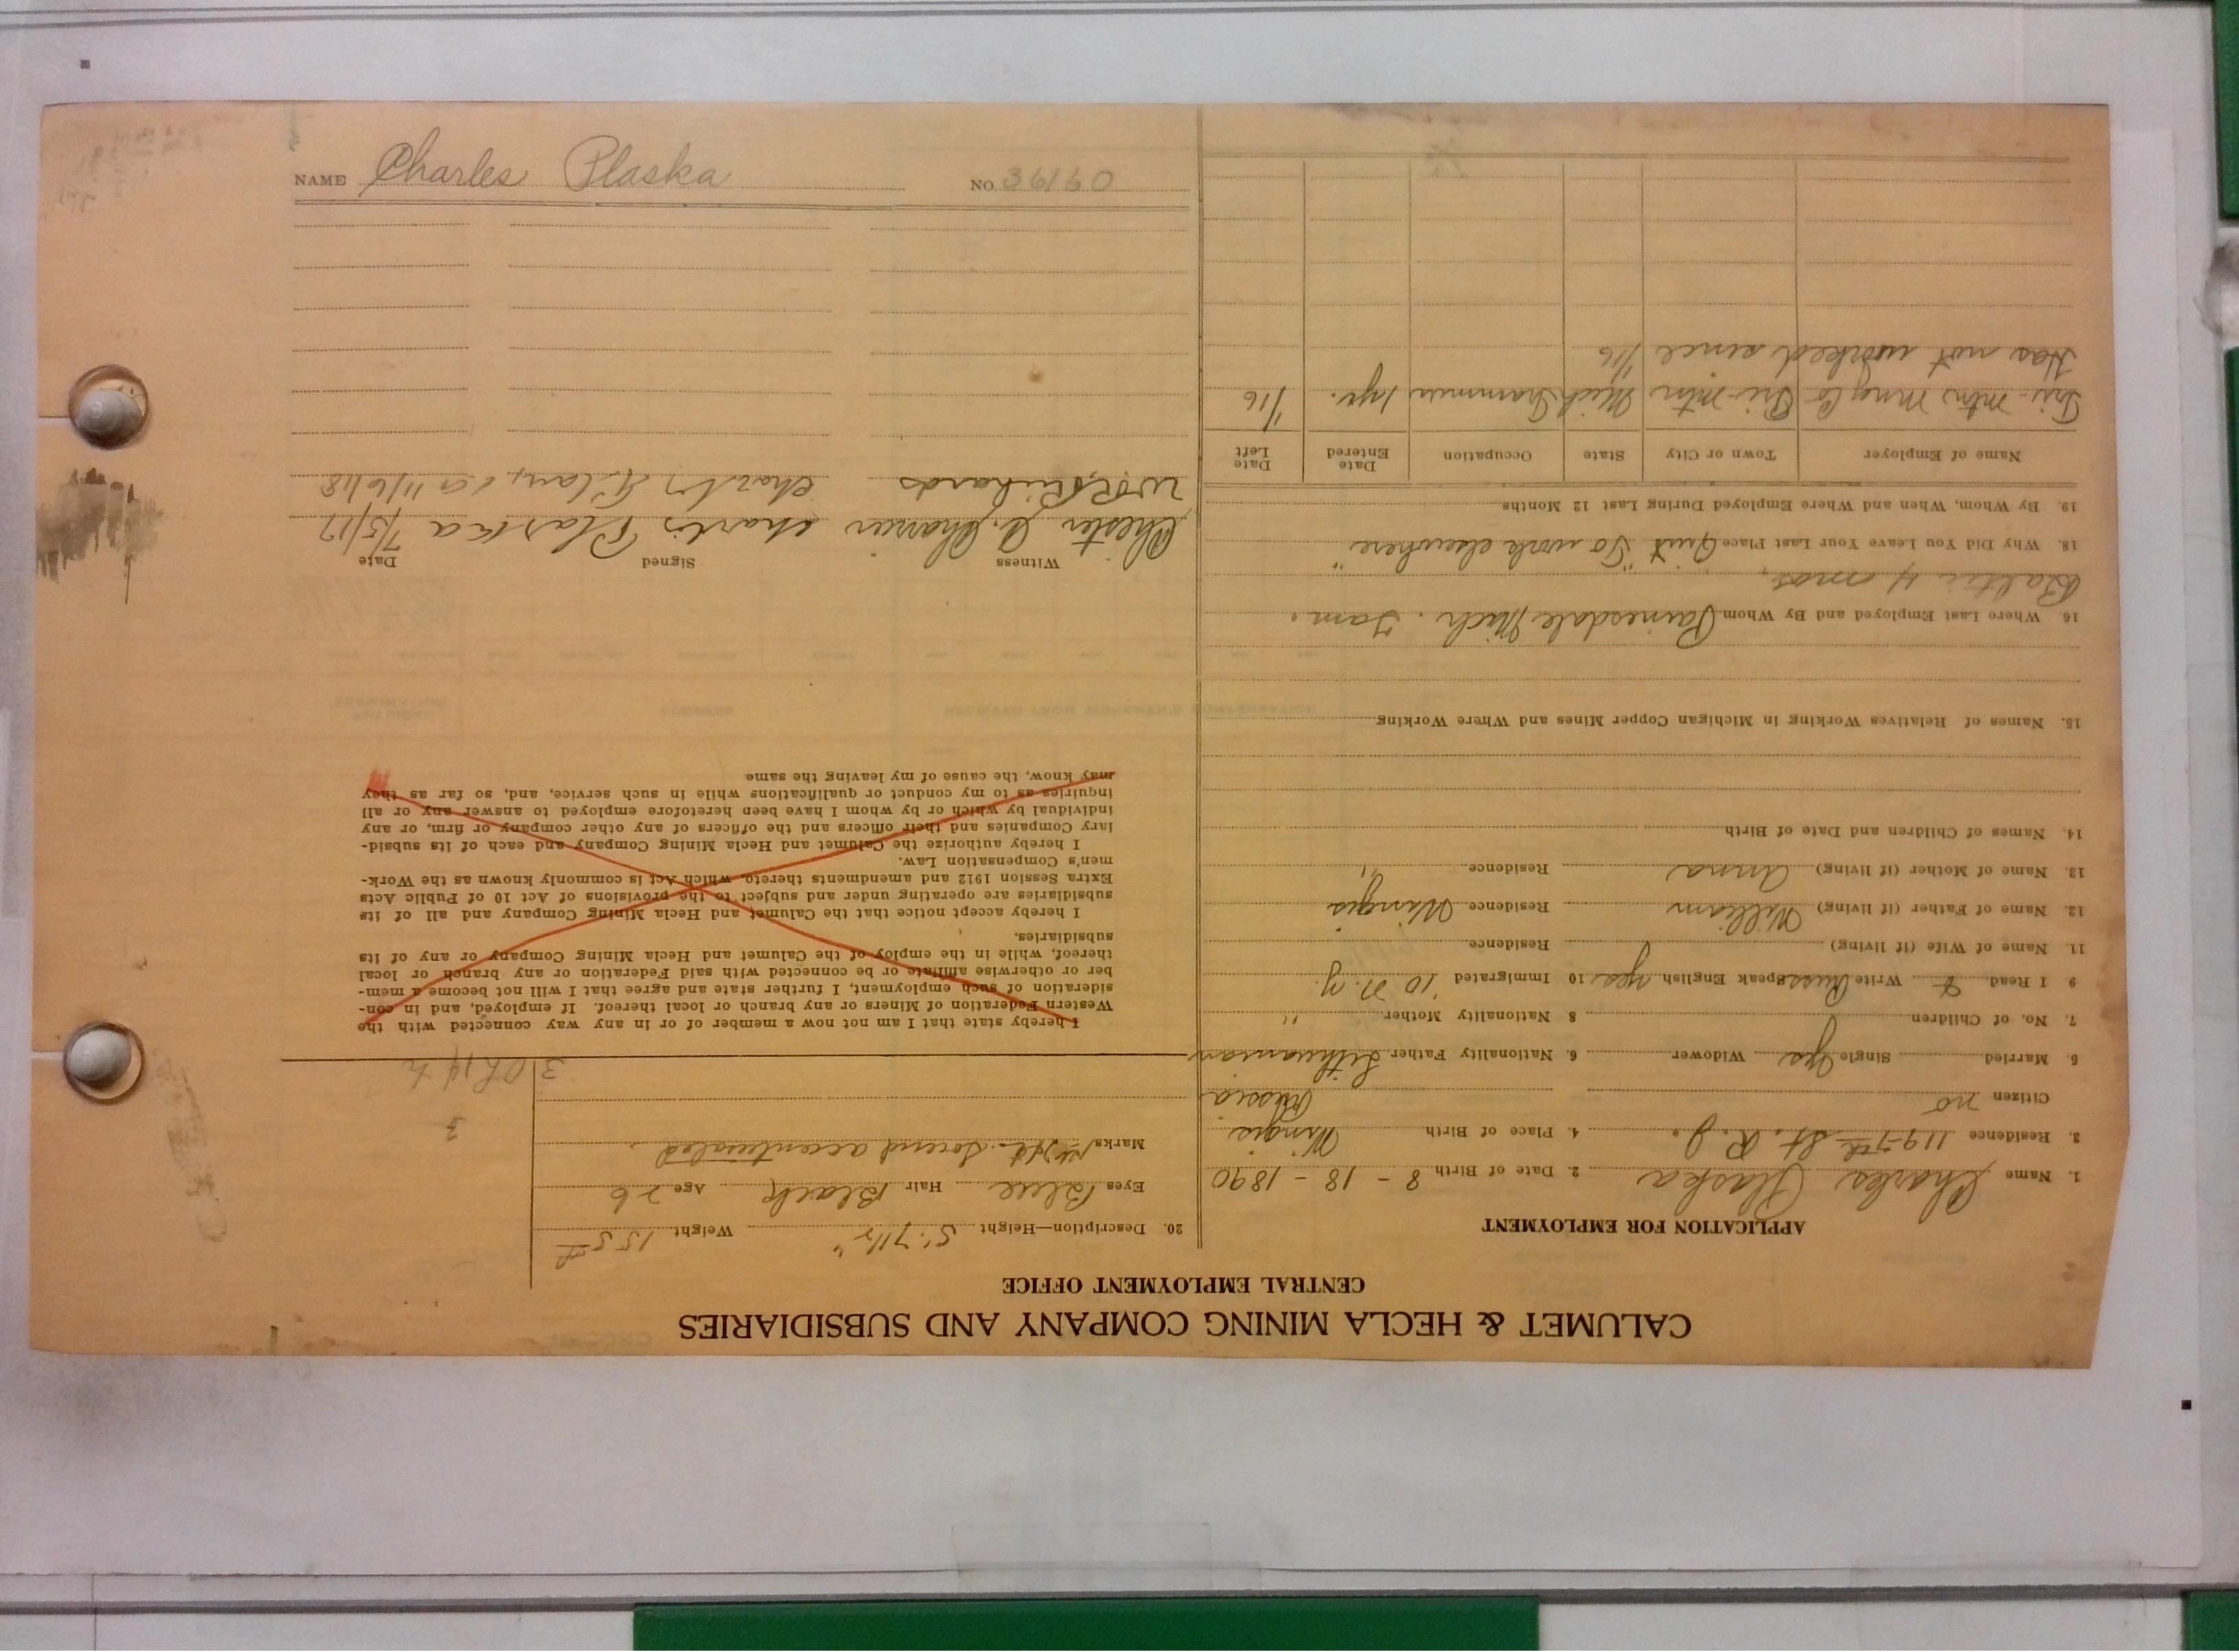 NAME Charles Plaska NO. 36160
CALUMET & HECLA MINING COMPANY AND SUBSIDIARIES
CENTRAL EMPLOYMENT OFFICE
APPLICATION FOR EMPLOYMENT
1. Name Charles Plaska 2. Date of Birth 8 - 18 - 1890
3. Residence 119-7th St. R. J. 4. Place of Birth Wingis
Citizen no Russia
5. Married Single yes Widower 6. Nationality Father Lithuanian
7. No. of Children 8 Nationality Mother "
9 I Read & Write Russ Speak English yes 10 Immigrated '10 N. Y.
11. Name of Wife (if living) Residence
12. Name of Father (if living) William Residence Wingis
13. Name of Mother (if living) Anna Residence "
14. Names of Children and Date of Birth
15. Names of Relatives Working in Michigan Copper Mines and Where Working
16 Where Last Employed and By Whom Painesdale Mich. Tam.
Baltic 4 mos.
18. Why Did You Leave Your Last Place Quit "To work elsewhere"
19. By Whom, When and Where Employed During Last 12 Months
Name of Employer Town or City State Occupation Date Entered Date Left
Tri-Mtn Mng Co Tri-Mtn Mich Trammer 1 yr. 1/16
Has not worked since 1/16
20. Description—Height 5' 7 1/2" Weight 155#
Eyes Blue Hair Black Age 26
Marks Ht. Sound accentuated
3
I hereby state that I am not now a member of or in any way connected with the
Western Federation of Miners or any branch or local thereof. If employed, and in con-
sideration of such employment, I further state and agree that I will not become a mem-
ber or otherwise affiliate or be connected with said Federation or any branch or local
thereof, while in the employ of the Calumet and Hecla Mining Company or any of its
subsidiaries.
I hereby accept notice that the Calumet and Hecla Mining Company and all of its
subsidiaries are operating under and subject to the provisions of Act 10 of Public Acts
Extra Session 1912 and amendments thereto, which Act is commonly known as the Work-
men's Compensation Law.
I hereby authorize the Calumet and Hecla Mining Company and each of its subsid-
iary Companies and their officers and the officers of any other company or firm, or any
individual by which or by whom I have been heretofore employed to answer any or all
inquiries as to my conduct or qualifications while in such service, and, so far as they
may know, the cause of my leaving the same
Witness Signed Date
Chester A. Charles Plaska 7/5/17
W.R. Richards Charles 11/6/18